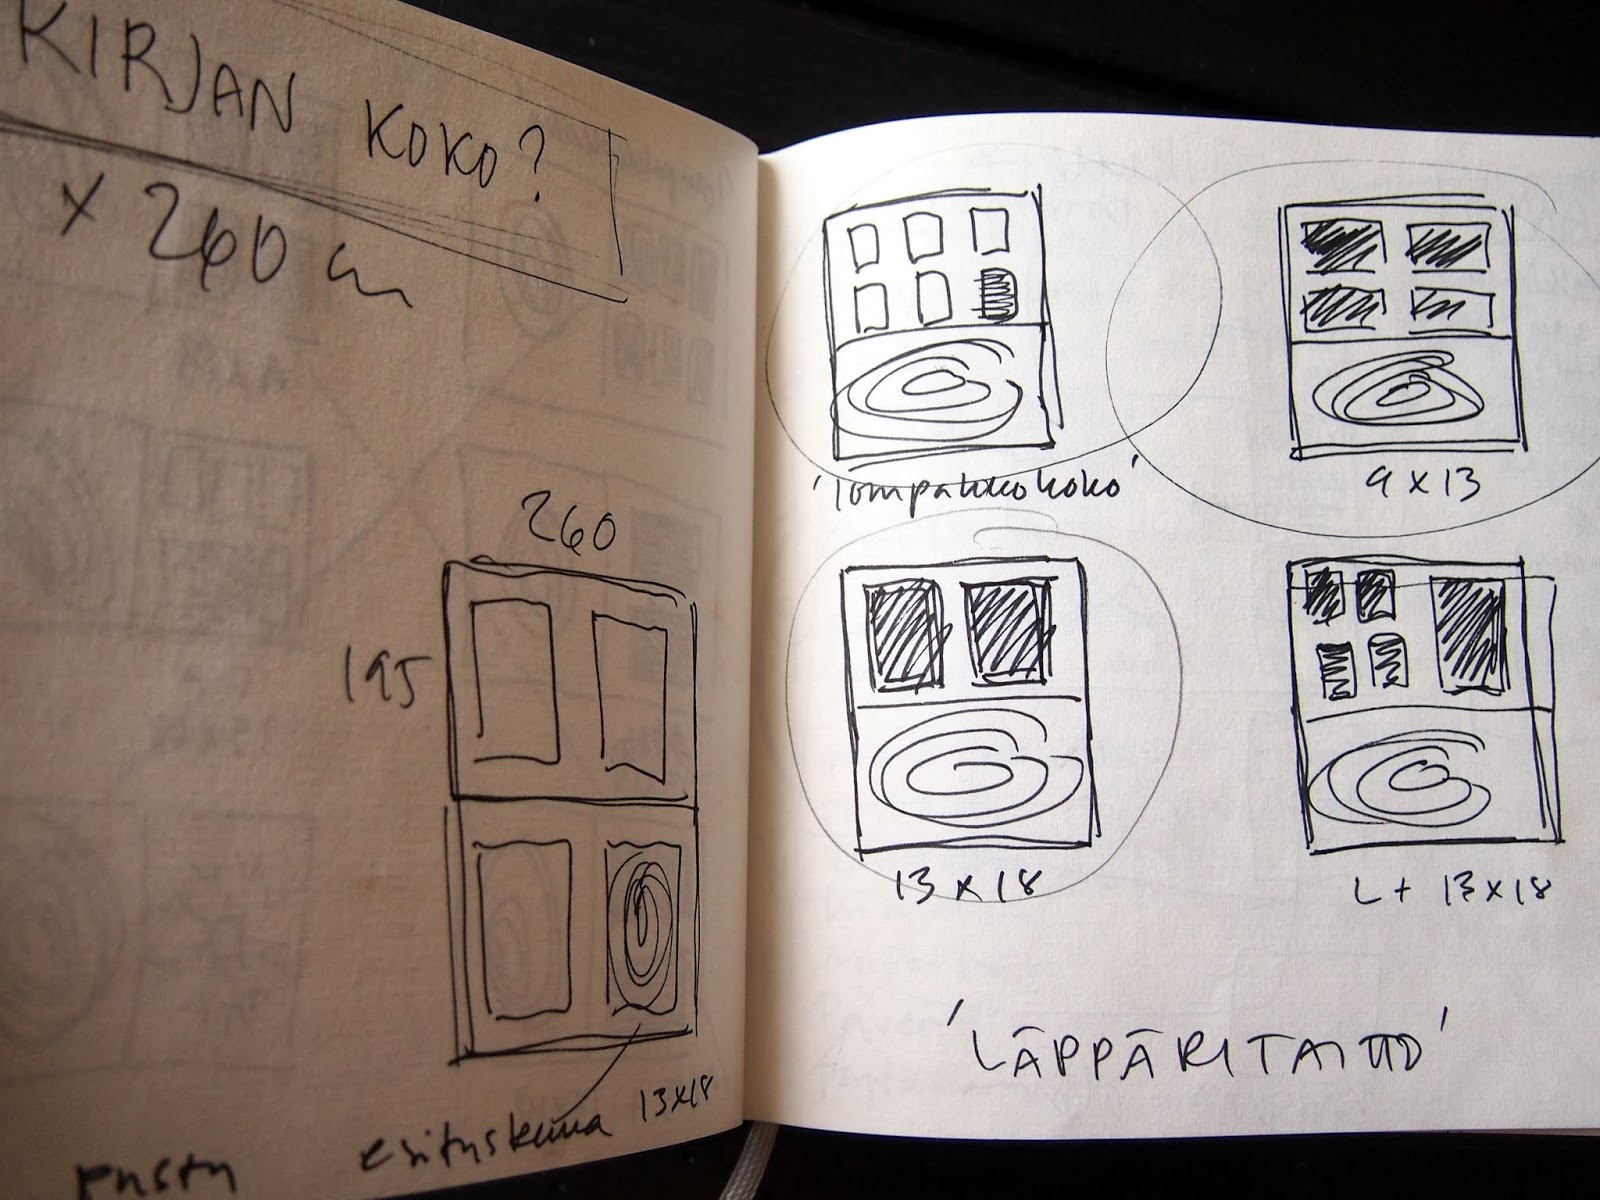 KIRJAN KOKO?
x 260 cm
260
195
esityskuva 13x18
pysty
'lompakkokoko'
9 x 13
13 x 18
L + 13x18
'LÄPPÄRITAITTO'